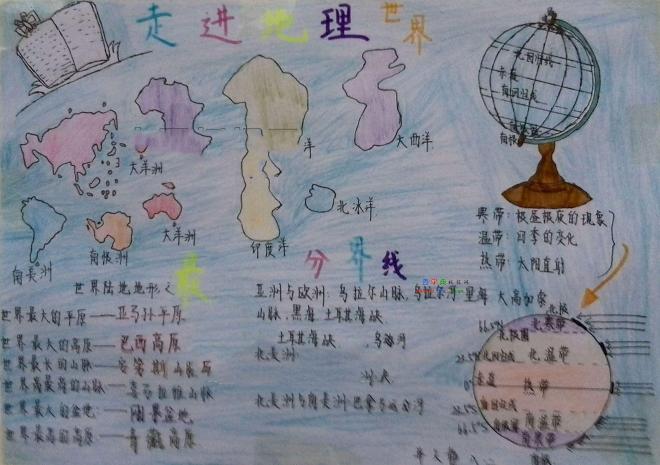 走进地理世界
北回归线
赤道
南回归线
南极
大洋洲
洋
大西洋
北冰洋
印度洋
南美洲
南极洲
大洋洲
寒带：极昼极夜的现象
温带：四季的变化
热带：太阳直射
世界陆地地形之最
世界最大的平原——亚马孙平原
世界最大的高原——巴西高原
世界最长的山脉——安第斯山脉
世界最高的山脉——喜马拉雅山脉
世界最大的盆地——刚果盆地
世界最高的高原——青藏高原
分界线
亚洲与欧洲：乌拉尔山脉，乌拉尔河，里海，大高加索
山脉，黑海，土耳其海峡
土耳其海峡
北美洲
北美洲与南美洲：巴拿马运河
北极
66.5° 北寒带
北极圈
23.5° 北回归线 北温带
0° 赤道 热带
南回归线
23.5° 南温带
66.5° 南极圈
南寒带